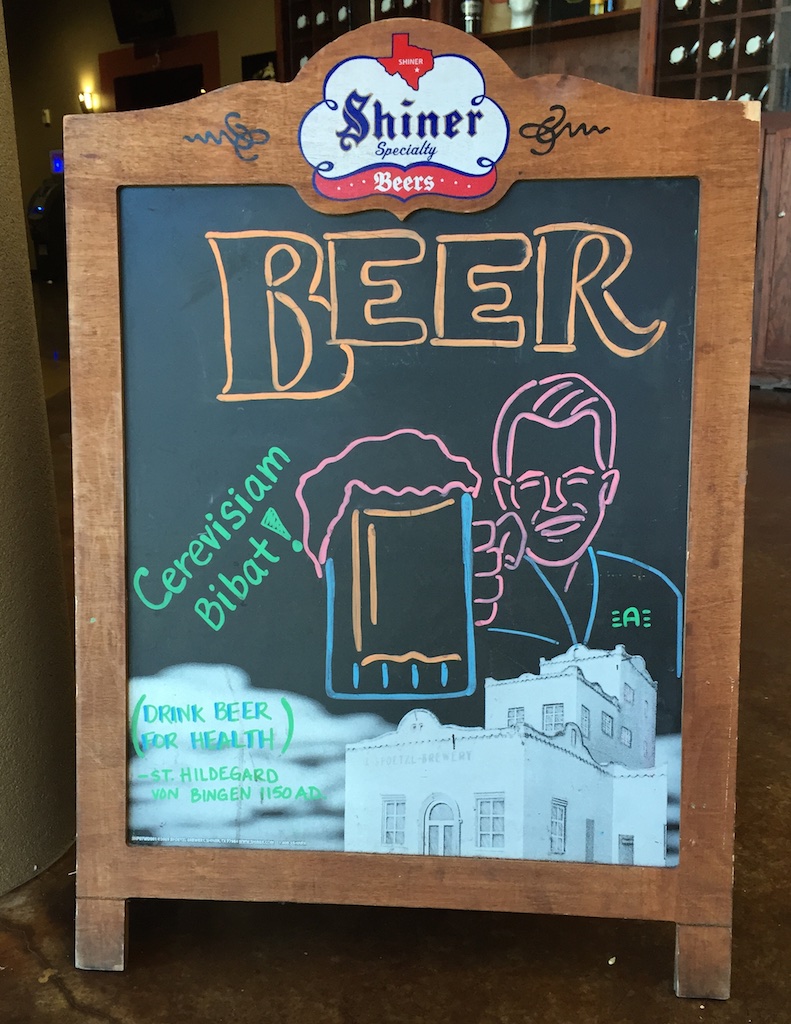 SHINER
Shiner
Specialty
Beers
BEER
Cerevisiam
Bibat!
A
(DRINK BEER
FOR HEALTH)
-ST. HILDEGARD
VON BINGEN 1150 A.D.
SPOETZL-BREWERY